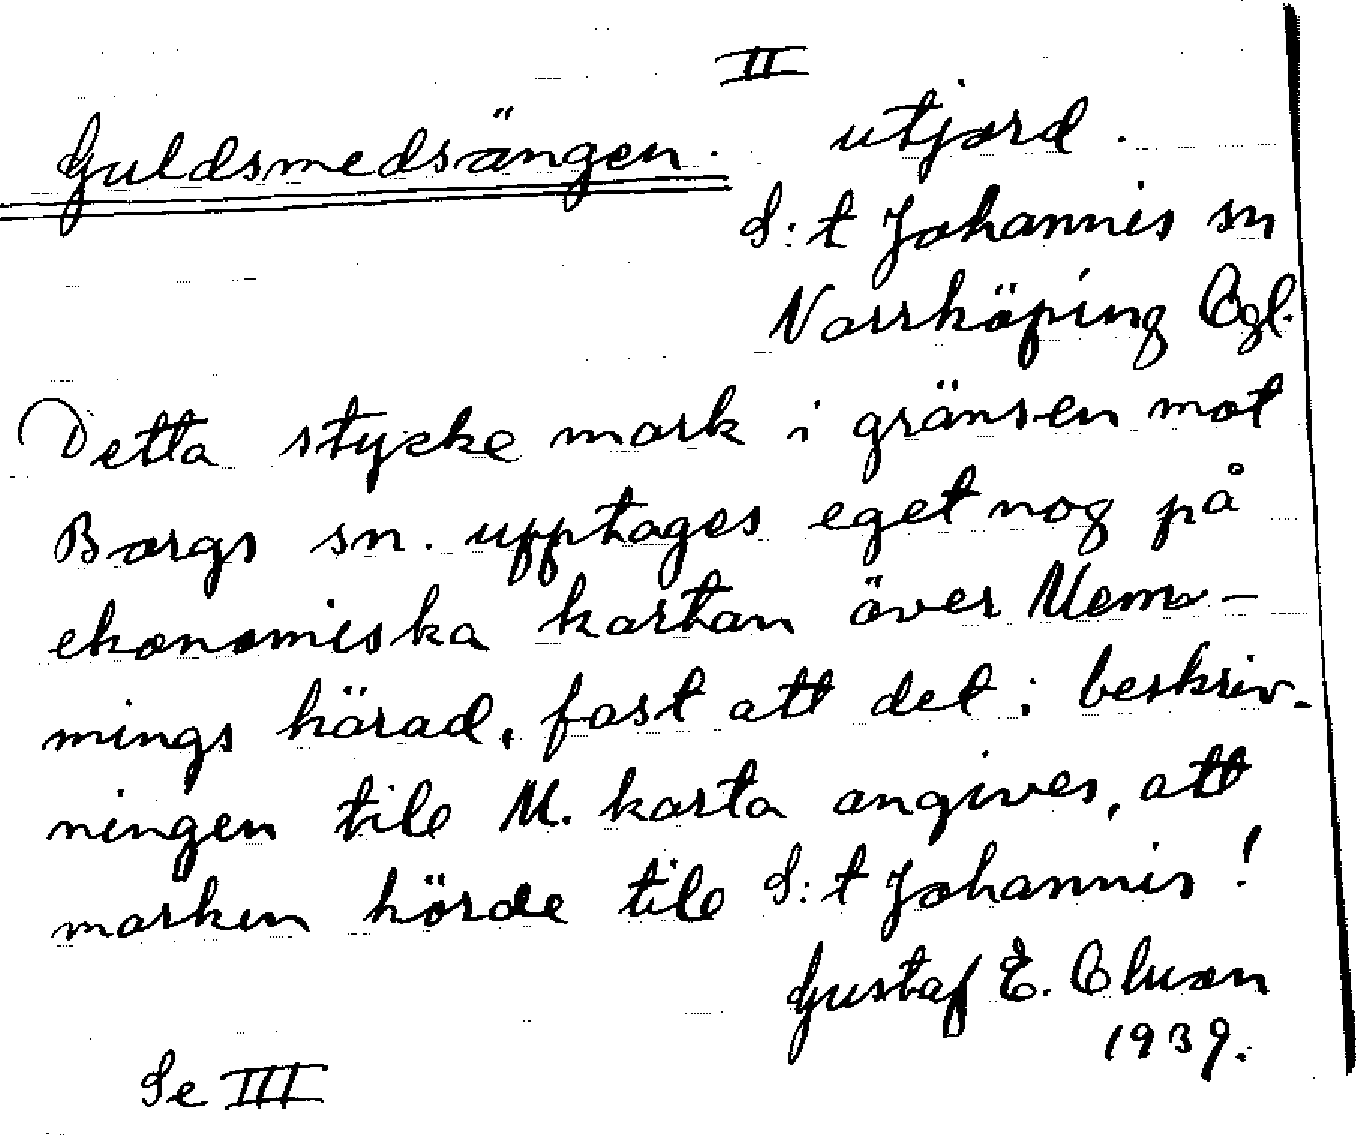 II
Guldsmedsängen. utjord.
S:t Johannis sn
Norrköping Ögl.
Detta stycke mark i gränsen mot
Borgs sn. upptages eget nog på
ekonomiska kartan över Mem-
mings härad, fast att det i beskriv-
ningen till M. karta angives, att
marken hörde till S:t Johannis!
Gustaf E. Olson
1939.
Se III